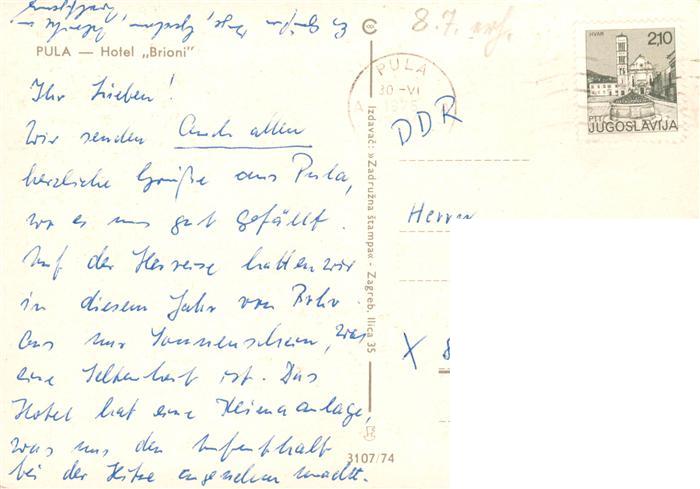 PULA — Hotel „Brioni"
Ihr Lieben!
Wir senden Euch allen
herzliche Grüße aus Pula,
wo es uns gut gefällt.
Auf der Herreise hatten wir
in diesem Jahr von
aus nur Sonnenschein, was
eine Seltenheit ist. Das
Hotel hat eine Klimaanlage,
was uns den Aufenthalt
bei der Hitze angenehm macht.
Izdavač: »Zadružna štampa« - Zagreb, Ilica 35
3107/74
8.7.
PULA
30-VI
HVAR
2,10
PTT
JUGOSLAVIJA
DDR
Herrn
X